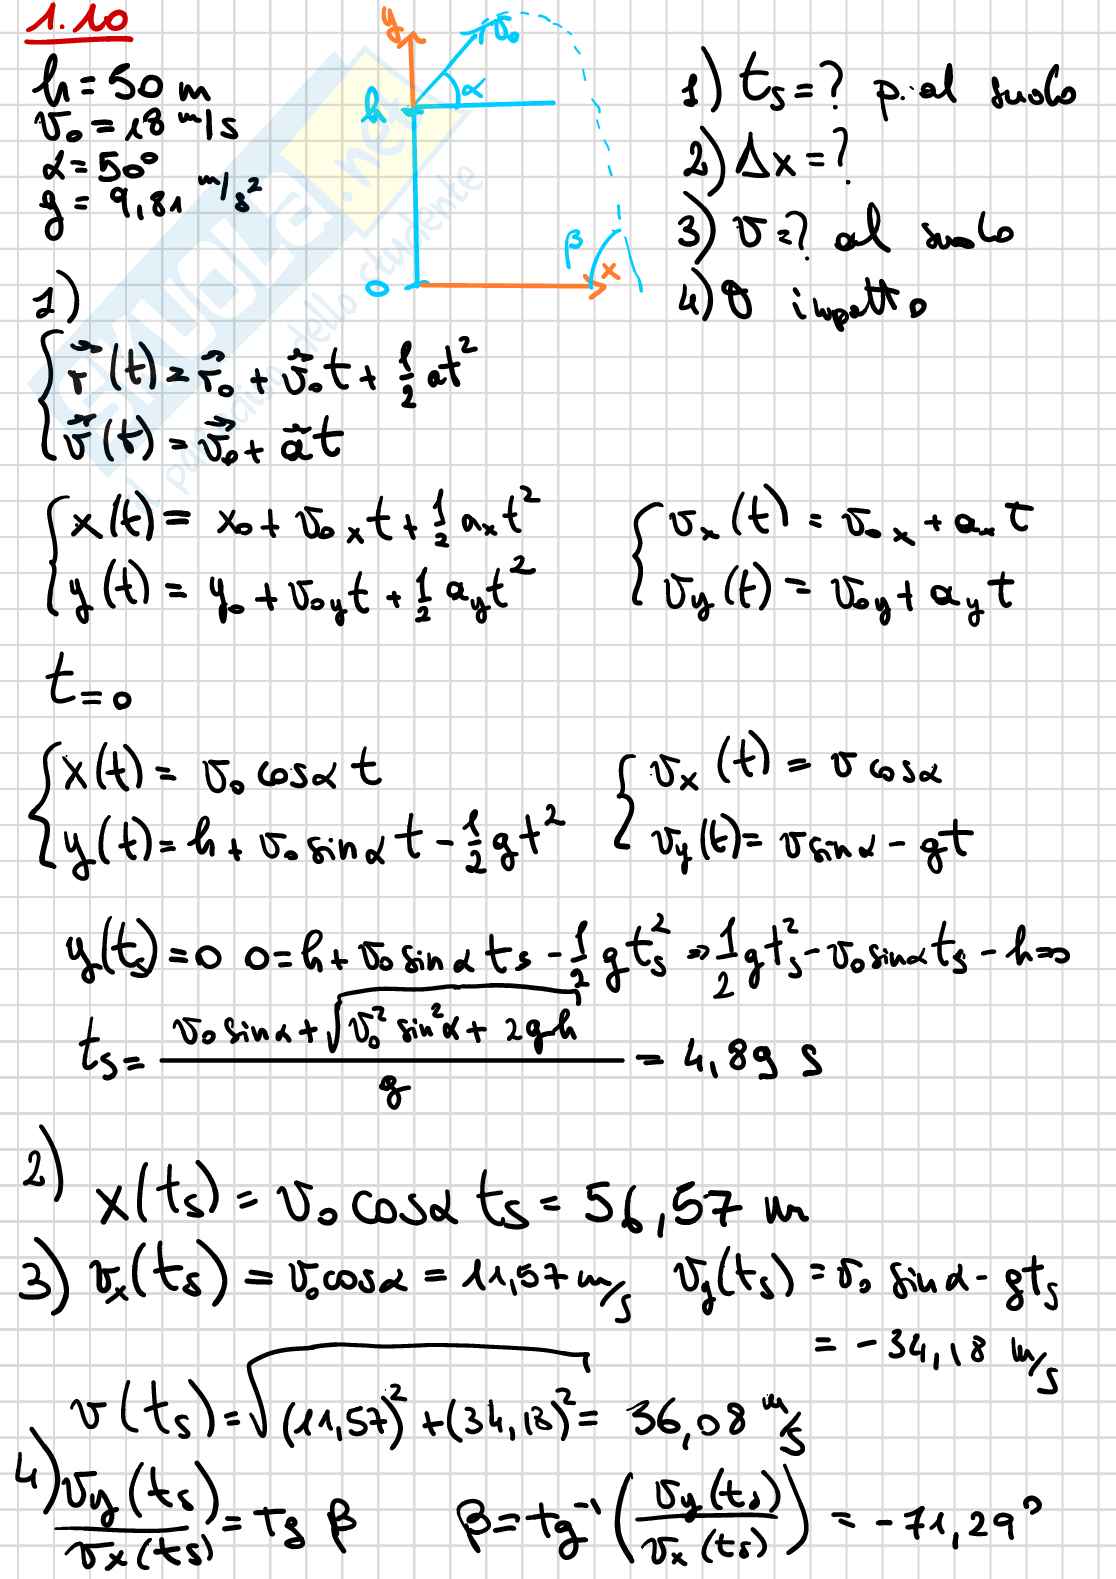 1.10
h = 50 m
v₀ = 18 m/s
α = 50°
g = 9,81 m/s²
y
v₀
α
h
0
β
x
1) ts = ? p. al suolo
2) Δx = ?
3) v = ? al suolo
4) θ impatto
SKUOLA.net
il paradiso dello studente
1)
r⃗(t) = r⃗₀ + v⃗₀t + 1/2 at²
v⃗(t) = v⃗₀ + a⃗t
x(t) = x₀ + v₀ₓt + 1/2 aₓt²
y(t) = y₀ + v₀yt + 1/2 ayt²
vₓ(t) = v₀ₓ + aₓt
vy(t) = v₀y + ayt
t = 0
x(t) = v₀ cosα t
y(t) = h + v₀ sinα t - 1/2 gt²
vₓ(t) = v cosα
vy(t) = v sinα - gt
y(ts) = 0 0 = h + v₀ sinα ts - 1/2 gts² => 1/2 gts² - v₀ sinα ts - h = 0
ts = (v₀ sinα + √(v₀² sin²α + 2gh)) / g = 4,89 s
2) x(ts) = v₀ cosα ts = 56,57 m
3) vₓ(ts) = v₀ cosα = 11,57 m/s vy(ts) = v₀ sinα - gts
= -34,18 m/s
v(ts) = √((11,57)² + (34,18)²) = 36,08 m/s
4) vy(ts)/vₓ(ts) = tg β β = tg⁻¹(vy(ts)/vₓ(ts)) = -71,29°